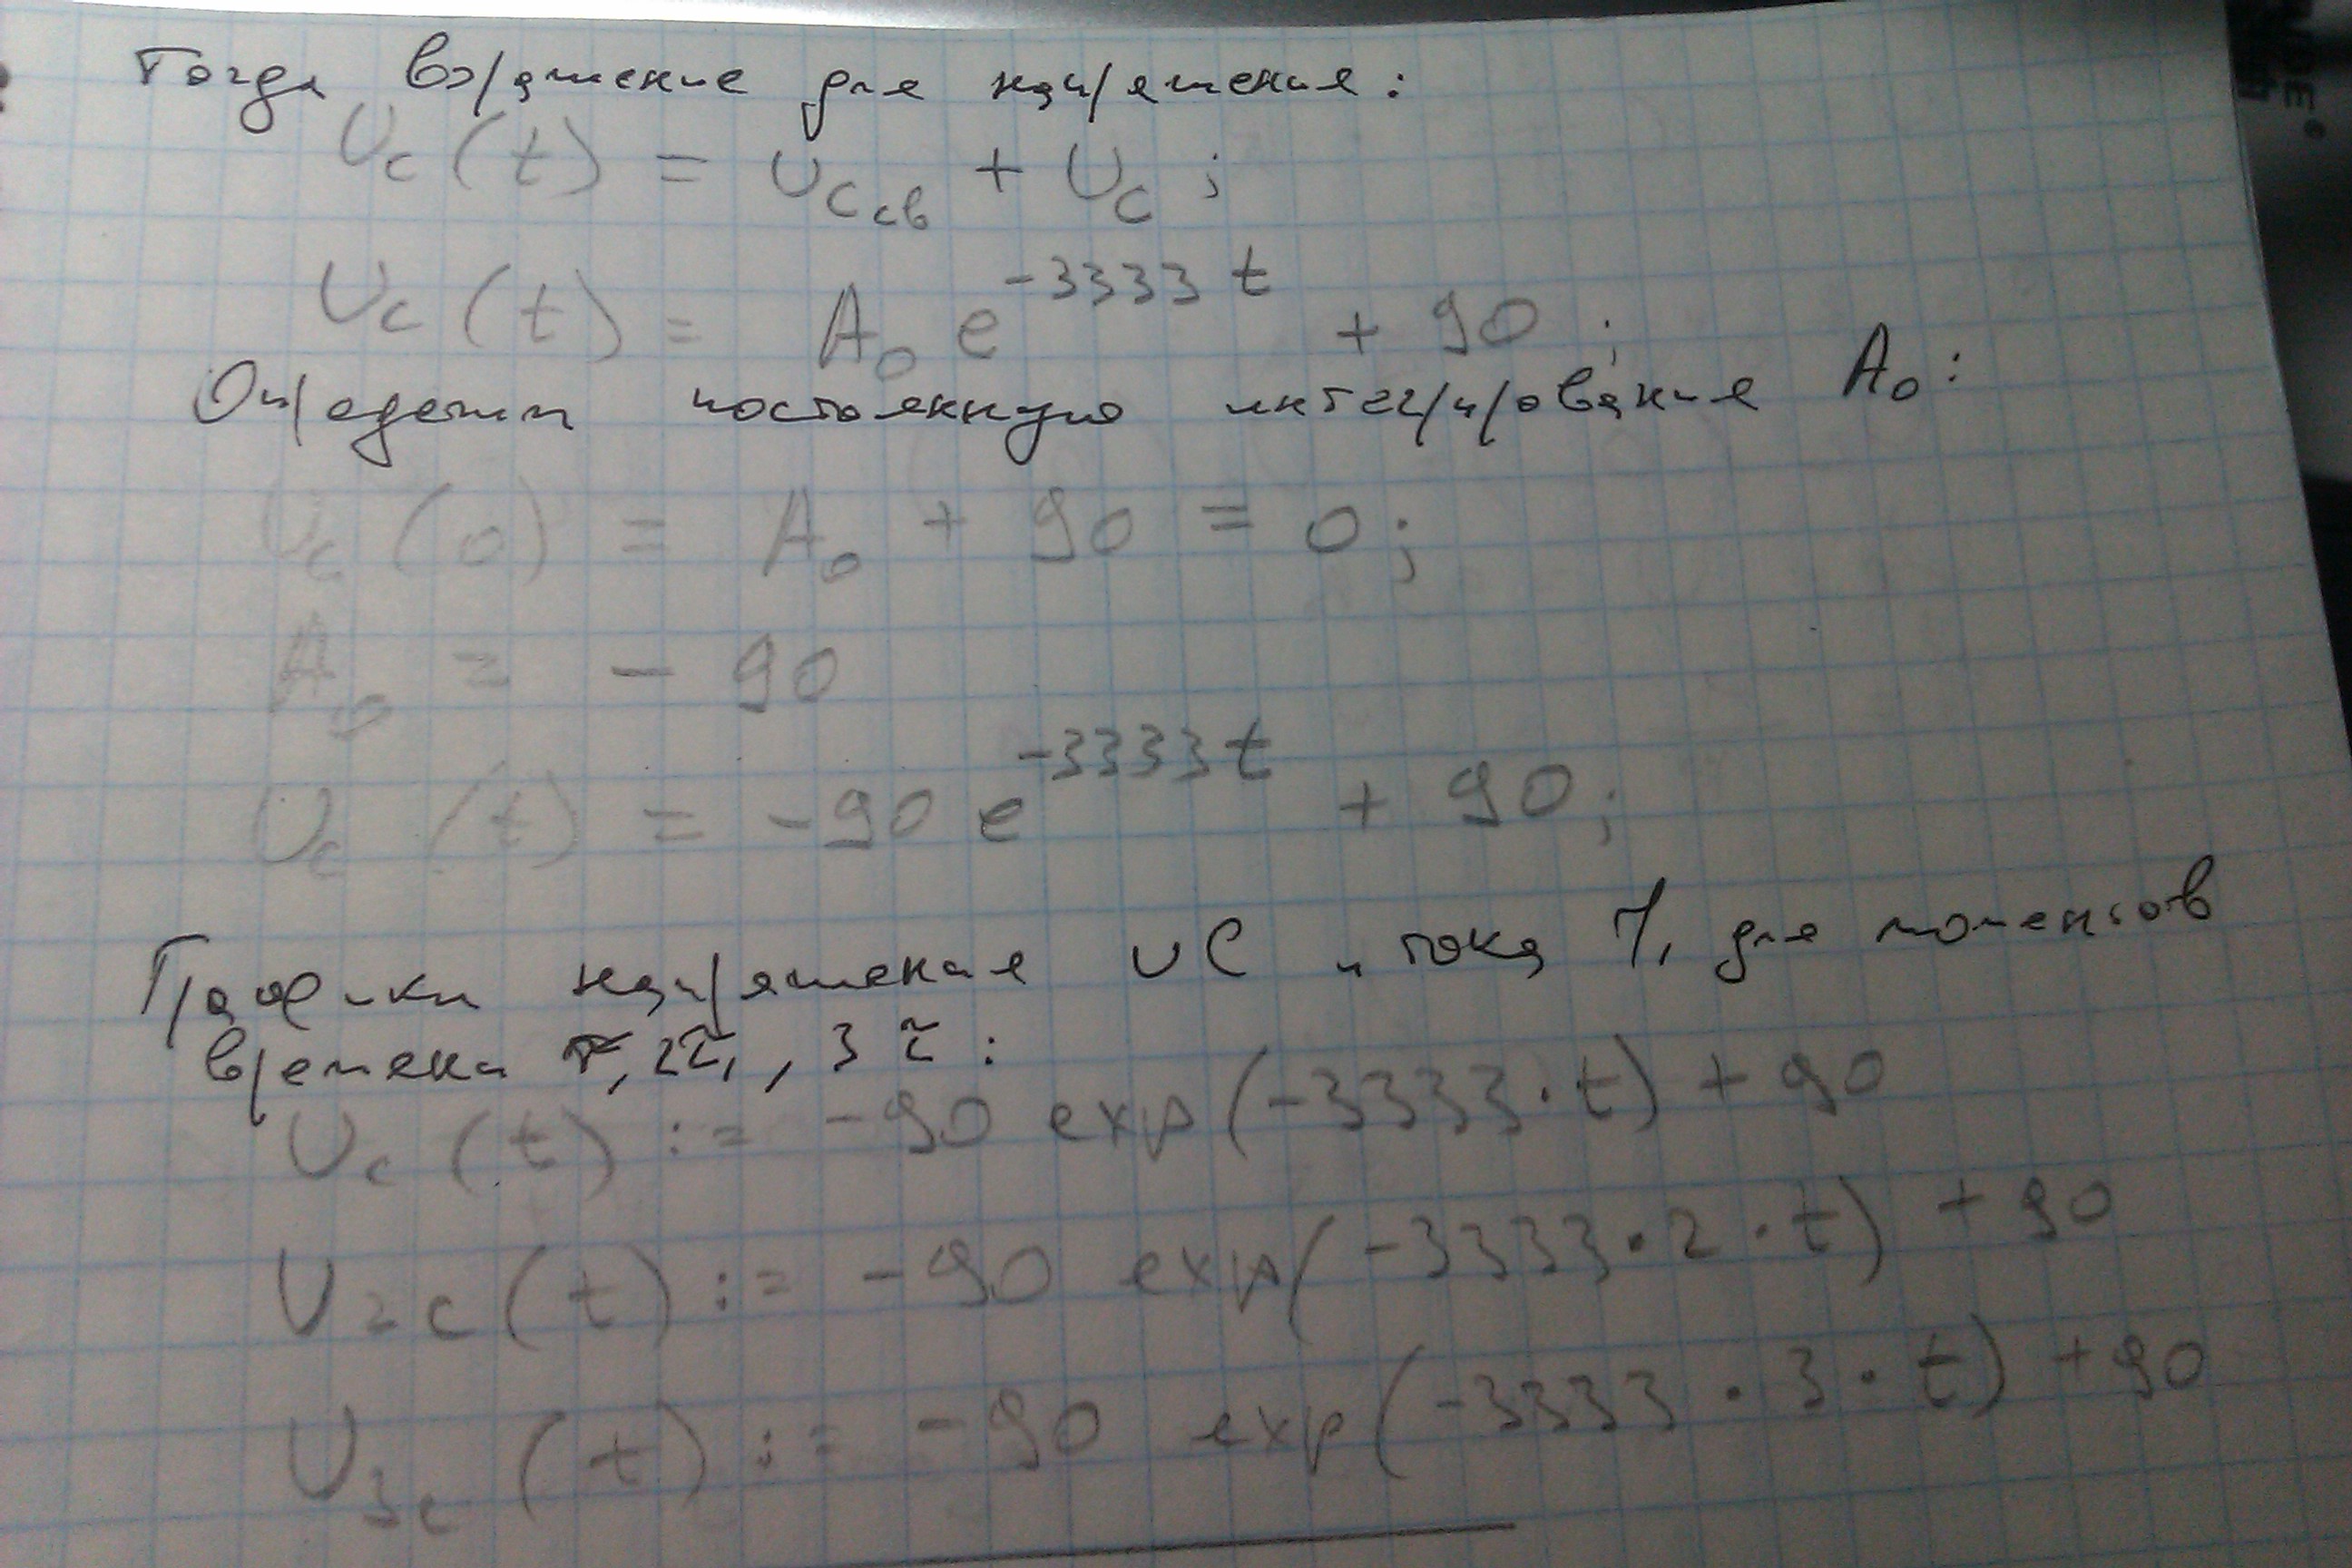 Тогда выражение для напряжения:
Uc(t) = Uc св + Uc ;
Uc(t) = A₀ e^-3333 t + 90 ;
Определим постоянную интегрирования A₀ :
Uc(0) = A₀ + 90 = 0 ;
A₀ = - 90
Uc (t) = -90 e^-3333t + 90 ;
Графики напряжения UC и тока для моментов
времени τ, 2τ, , 3 τ :
Uc(t) := -90 exp(-3333·t) + 90
U2c(t) := -90 exp(-3333·2·t) + 90
U3c (t) := -90 exp(-3333·3·t) + 90